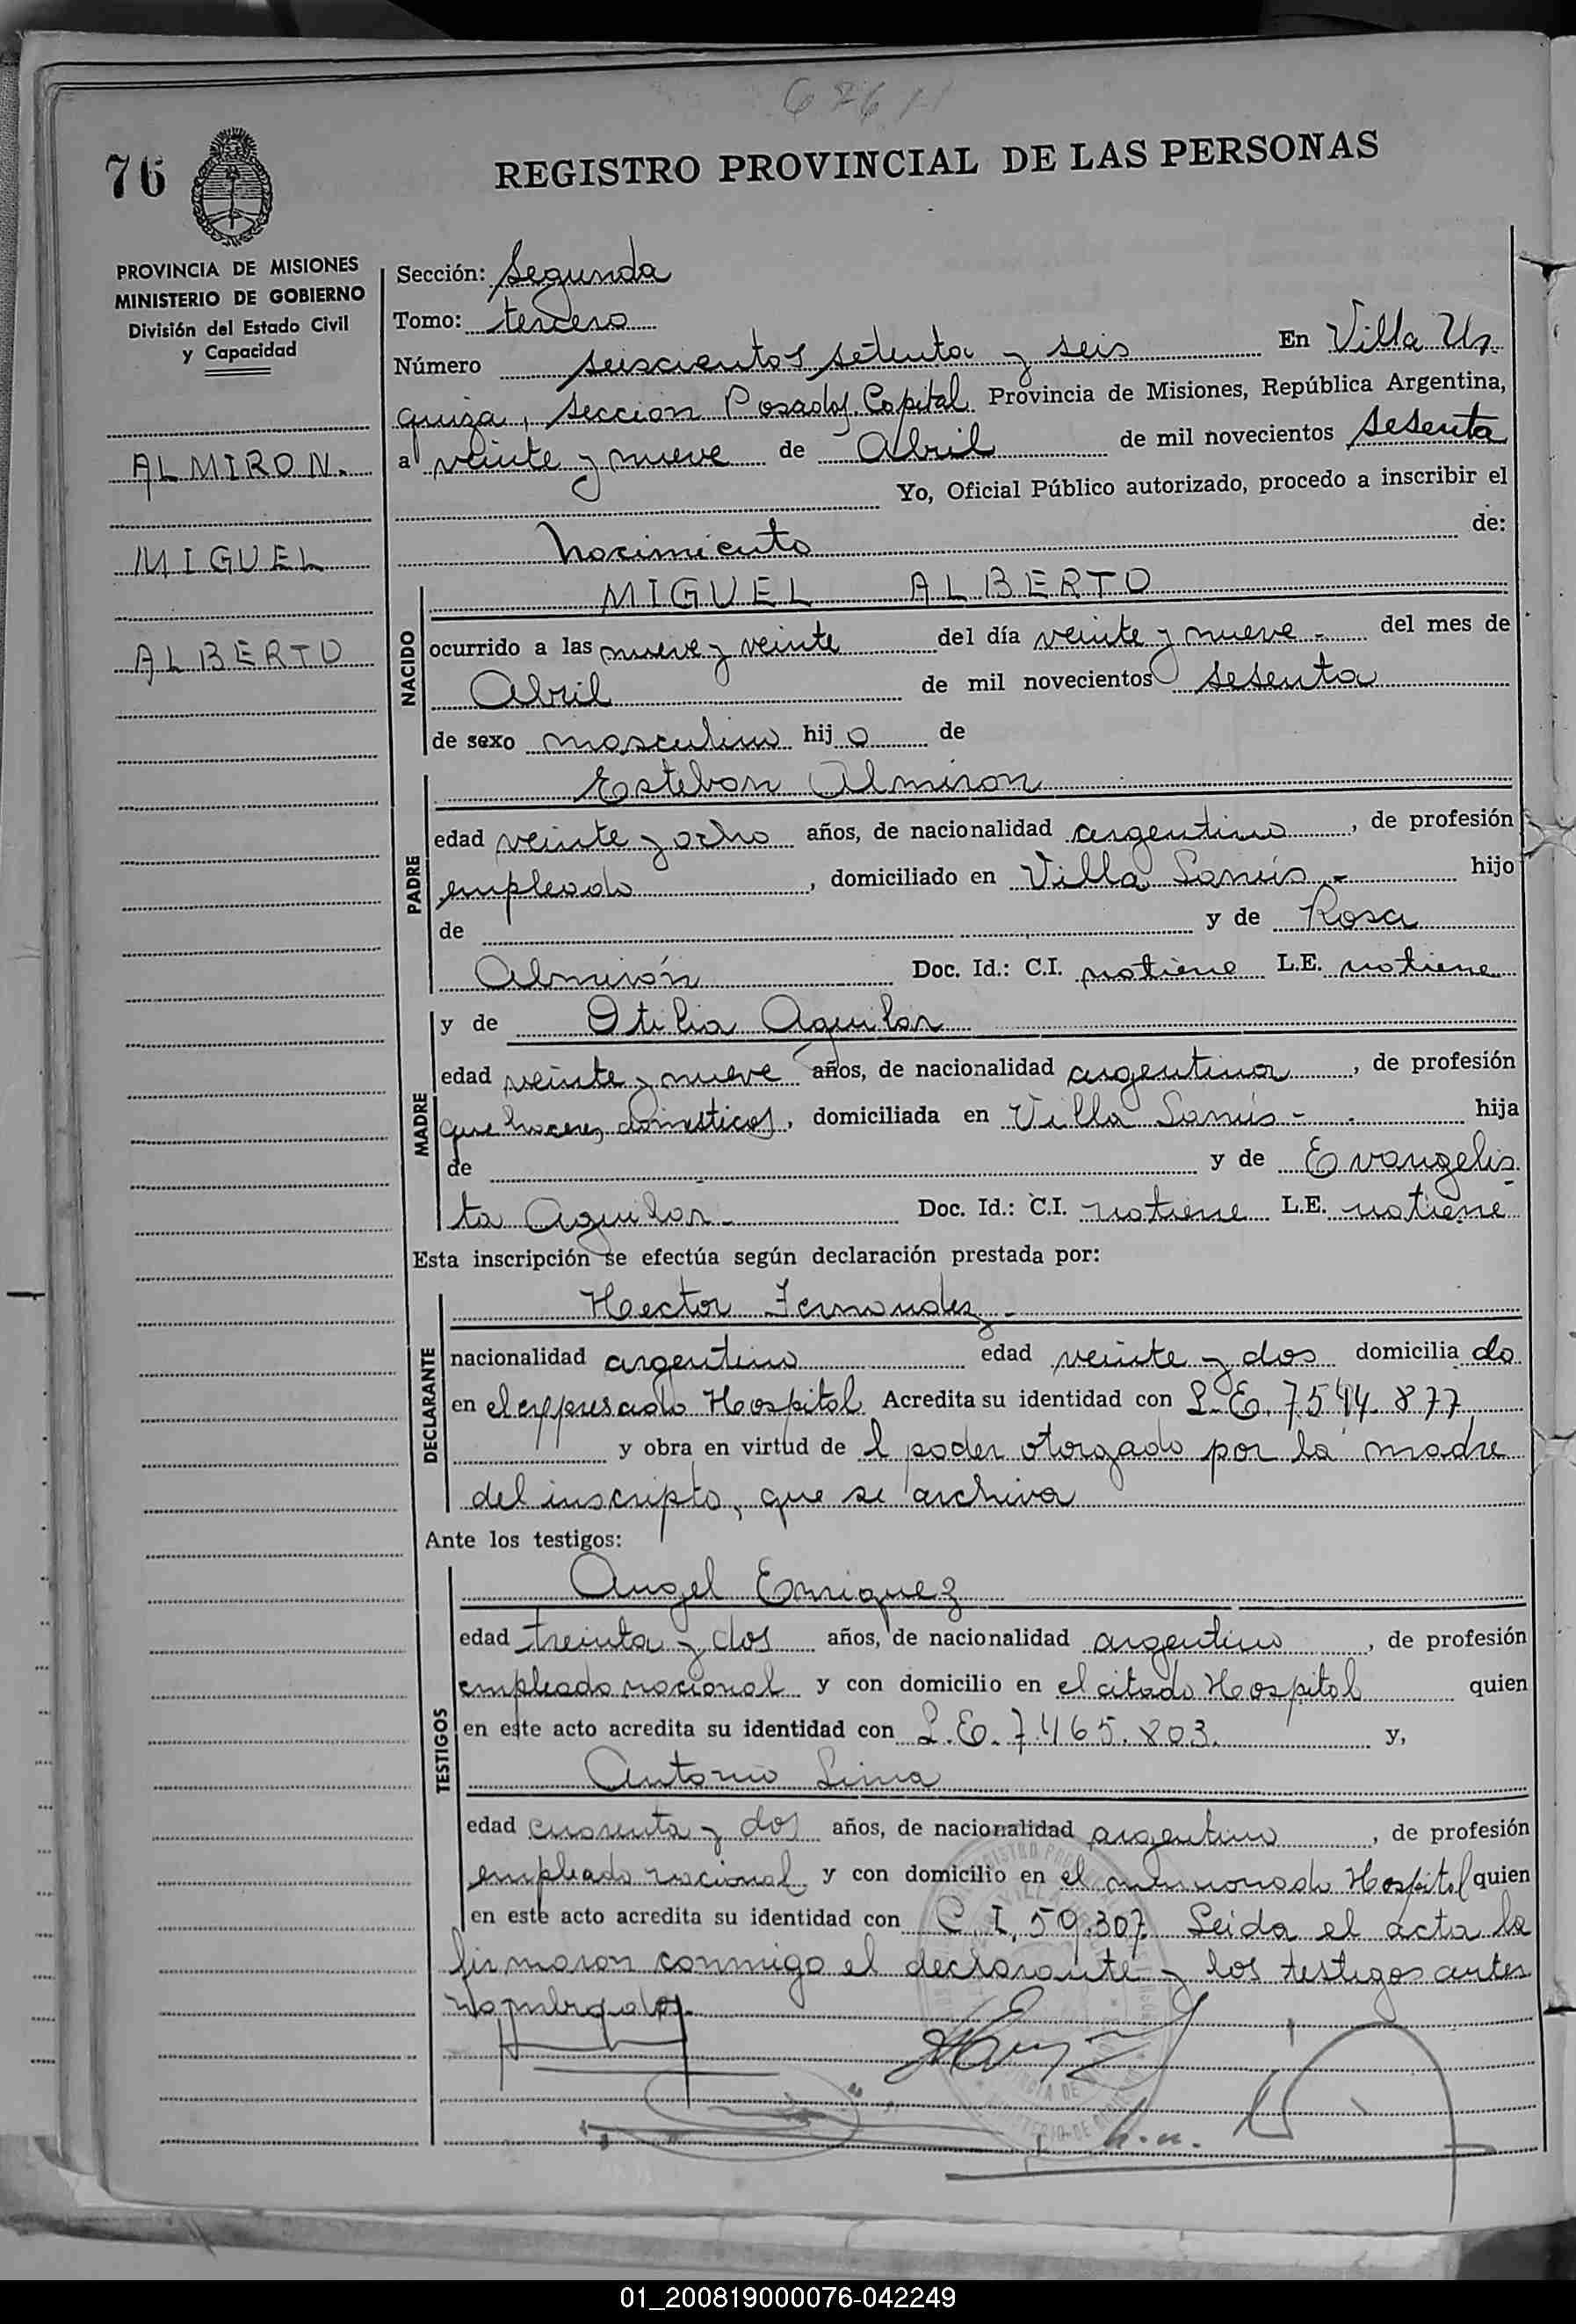 76
REGISTRO PROVINCIAL DE LAS PERSONAS
PROVINCIA DE MISIONES
MINISTERIO DE GOBIERNO
División del Estado Civil
y Capacidad
ALMIRON.
MIGUEL
ALBERTO
Sección: Segunda
Tomo: tercero
Número seiscientos setenta y seis En Villa Ur
quiza, sección Posadas, Capital Provincia de Misiones, República Argentina,
a veinte y nueve de Abril de mil novecientos sesenta
Yo, Oficial Público autorizado, procedo a inscribir el
nacimiento de:
NACIDO
MIGUEL ALBERTO
ocurrido a las nueve y veinte del día veinte y nueve - del mes de
Abril de mil novecientos sesenta
de sexo masculino hij o de
PADRE
Esteban Almiron
edad veinte y ocho años, de nacionalidad argentino, de profesión
empleado, domiciliado en Villa Lanús - hijo
de y de Rosa
Almirón Doc. Id.: C.I. no tiene L.E. no tiene
MADRE
y de Otilia Aguilar
edad veinte y nueve años, de nacionalidad argentina, de profesión
que haceres domesticos, domiciliada en Villa Lanús - hija
de y de Evangelis
ta Aguilar - Doc. Id.: C.I. no tiene L.E. no tiene
Esta inscripción se efectúa según declaración prestada por:
DECLARANTE
Hector Fernandez -
nacionalidad argentino edad veinte y dos domicilia do
en el expresado Hospital Acredita su identidad con L.E. 7544.877
y obra en virtud de l poder otorgado por la madre
del inscripto, que se archiva
Ante los testigos:
TESTIGOS
Angel Enriquez
edad treinta y dos años, de nacionalidad argentino, de profesión
empleado nacional y con domicilio en el citado Hospital quien
en este acto acredita su identidad con L.E. 7.465.803. y,
Antonio Lima
edad cuarenta y dos años, de nacionalidad argentino, de profesión
empleado nacional y con domicilio en el mencionado Hospital quien
en este acto acredita su identidad con C.I. 59.307. Leida el acta la
firmaron conmigo el declarante y los testigos antes
nombrados.
01_200819000076-042249